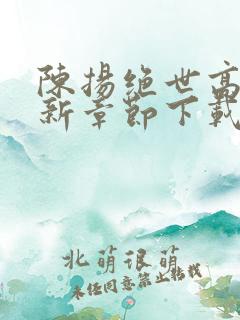 陳揚絕世高
新章節下載
北萌很萌
未经同意禁止转载